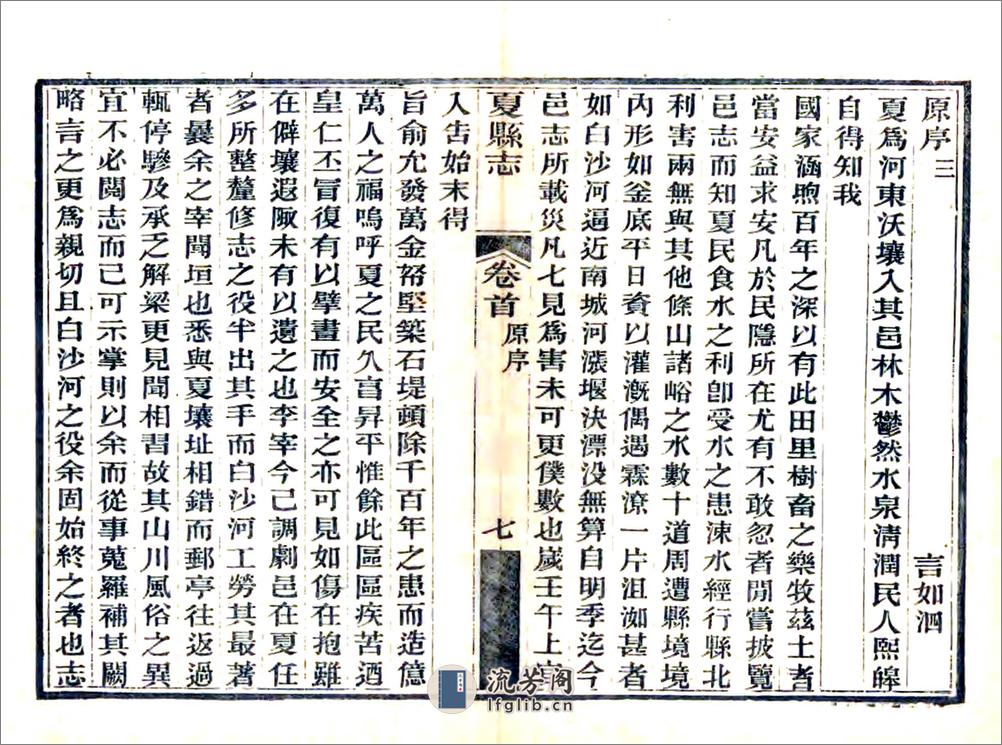 原序三
言如泗
夏爲河東沃壤入其邑林木鬱然水泉清潤民人熙皥
自得知我
國家涵煦百年之深以有此田里樹畜之樂牧茲土者
當安益求安凡於民隱所在尤有不敢忽者閒嘗披覽
邑志而知夏民食水之利卽受水之患涑水經行縣北
利害兩無與其他條山諸峪之水數十道周遭縣境境
內形如釜底平日資以灌漑偶遇霖潦一片沮洳甚者
如白沙河逼近南城河漲堰決漂没無算自明季迄今
邑志所載災凡七見爲害未可更僕數也歲壬午上
夏縣志
卷首
原序
七
入告始末得
旨俞允發萬金帑堅築石堤頓除千百年之患而造億
萬人之福嗚呼夏之民久享昇平惟餘此區區疾苦迺
皇仁丕冒復有以擘畫而安全之亦可見如傷在抱雖
在僻壤遐陬未有以遺之也李宰今已調劇邑在夏任
多所整釐修志之役半出其手而白沙河工勞其最著
者曩余之宰聞垣也悉與夏壤址相錯而郵亭往返過
輒停驂及承乏解梁更見聞相習故其山川風俗之異
宜不必閱志而已可示掌則以余而從事蒐羅補其闕
略言之更爲親切且白沙河之役余固始終之者也志
流芳阁
lfglib.cn